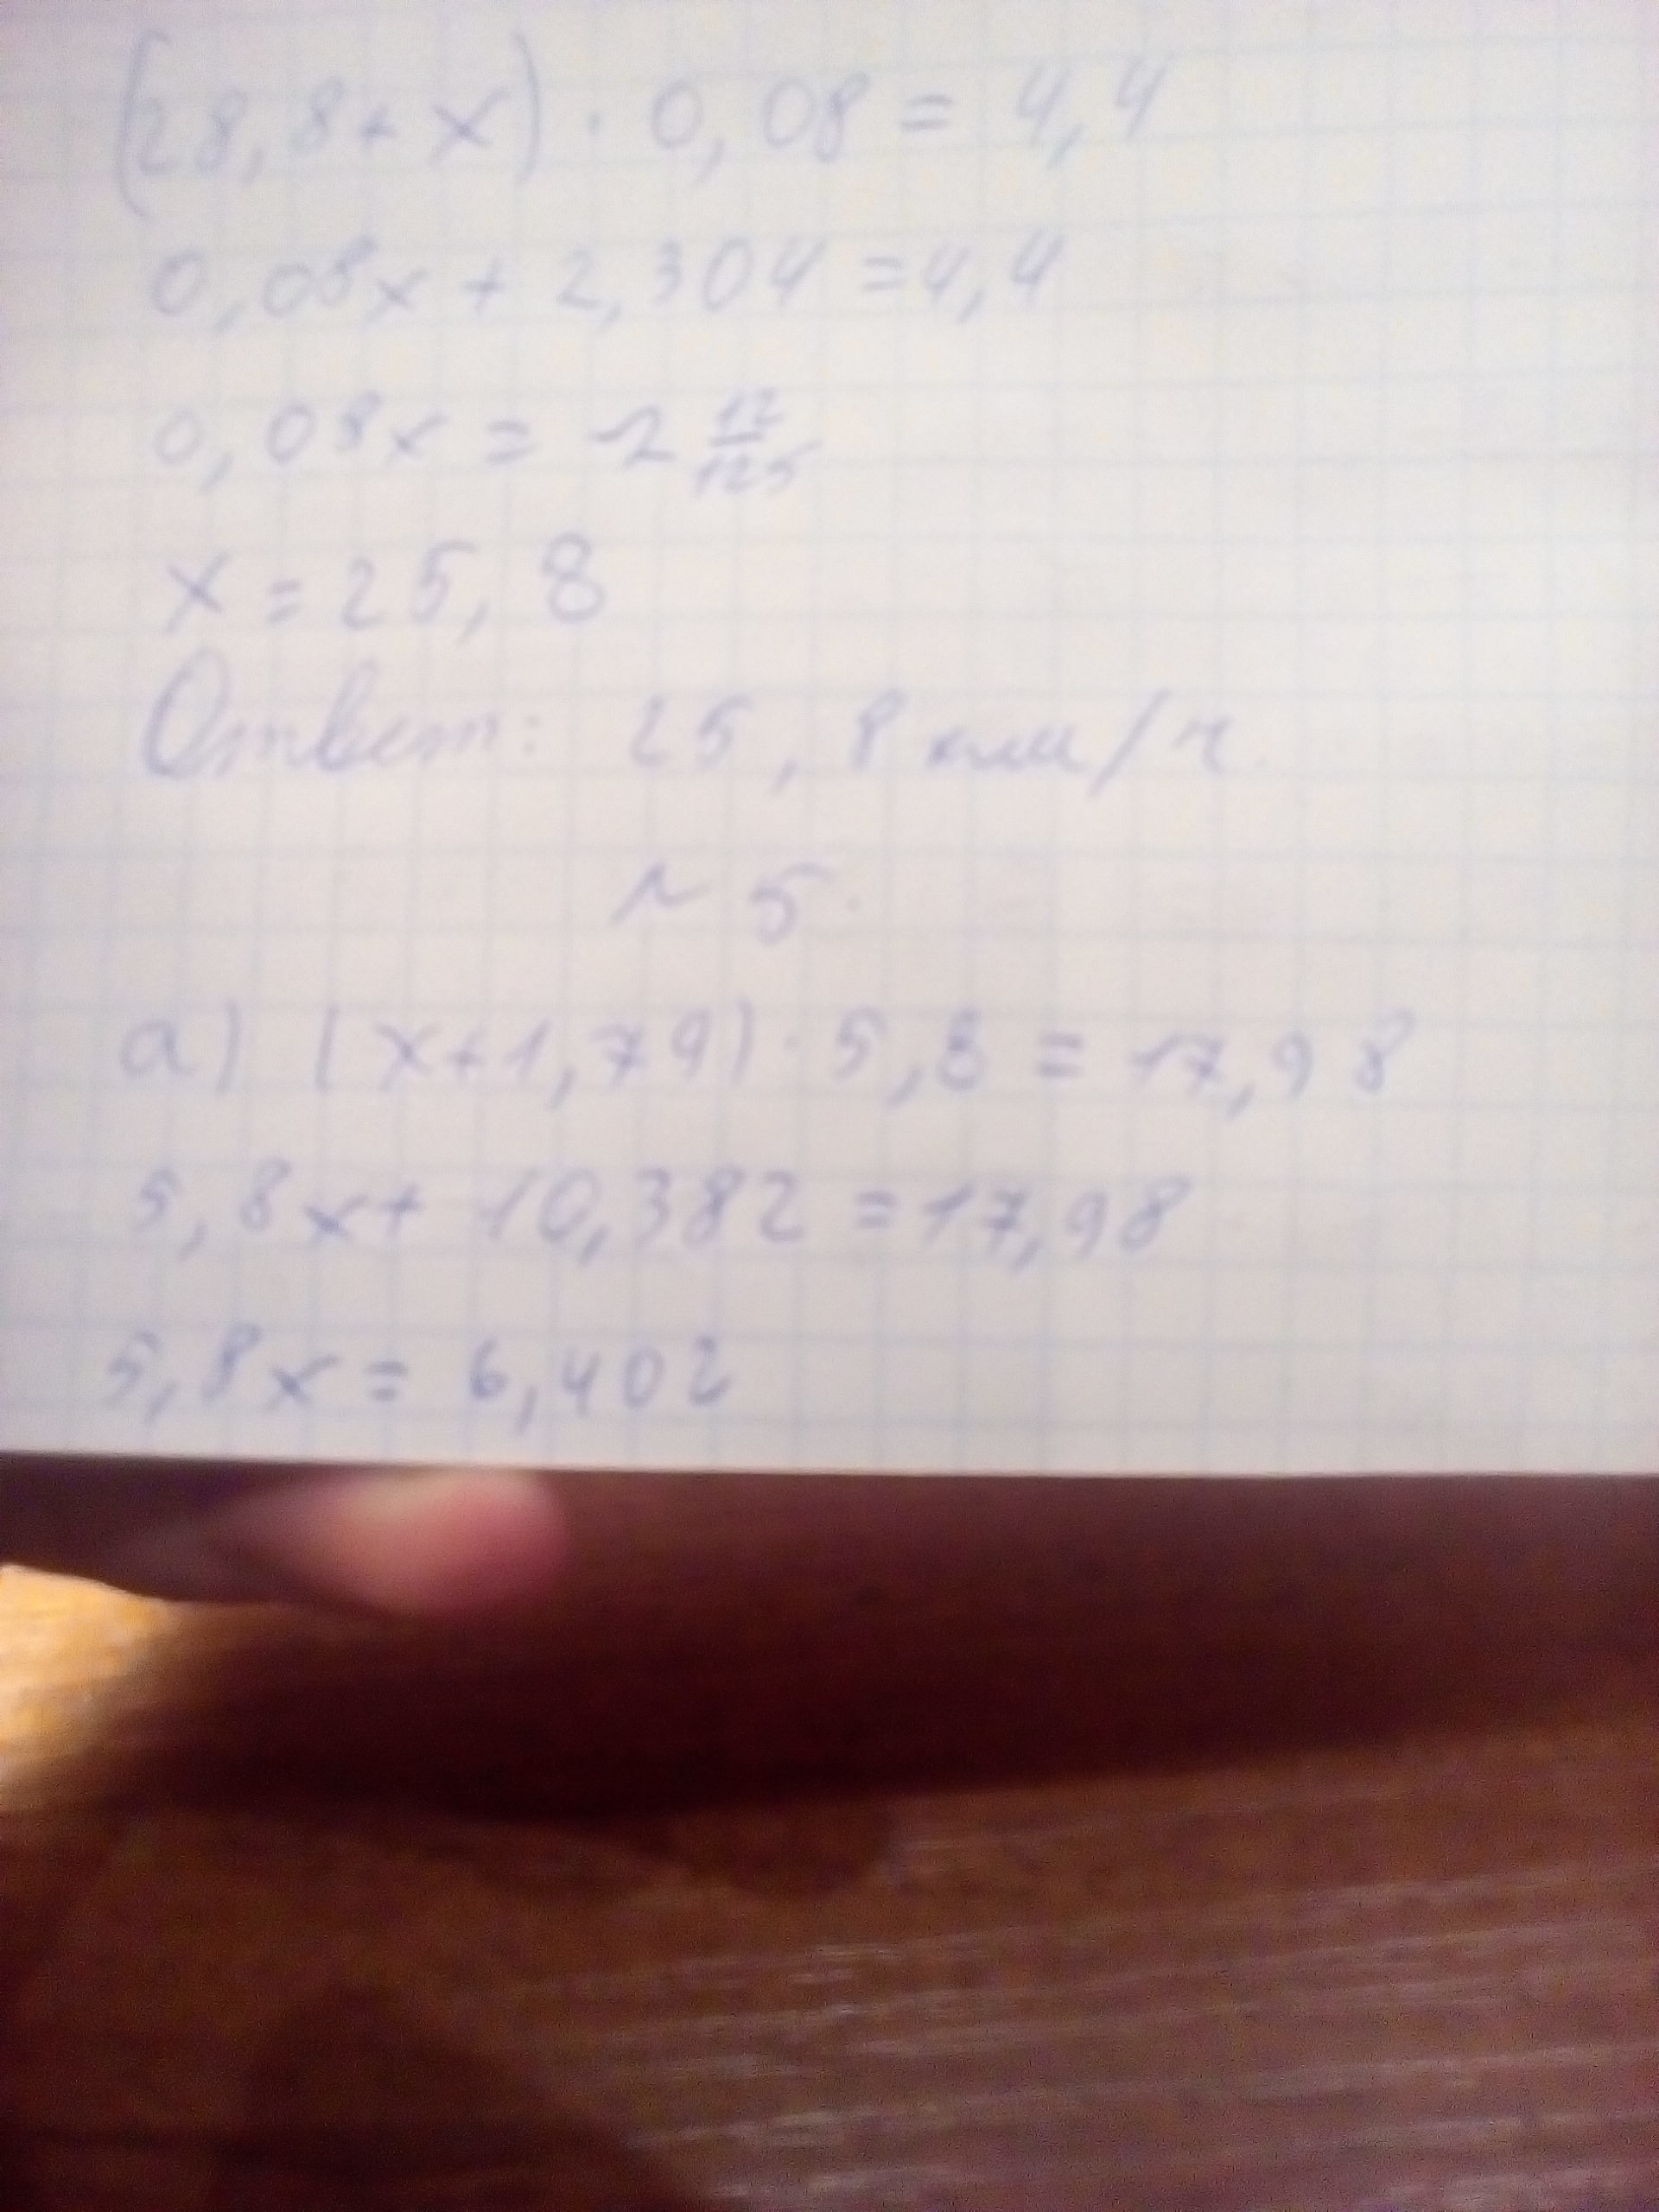 (28,8+x)·0,08=4,4
0,08x+2,304=4,4
0,08x=2 12/125
x=25,8
Ответ: 25,8 км/ч.
№5.
а) (x+1,79)·5,8=17,98
5,8x+10,382=17,98
5,8x=6,402